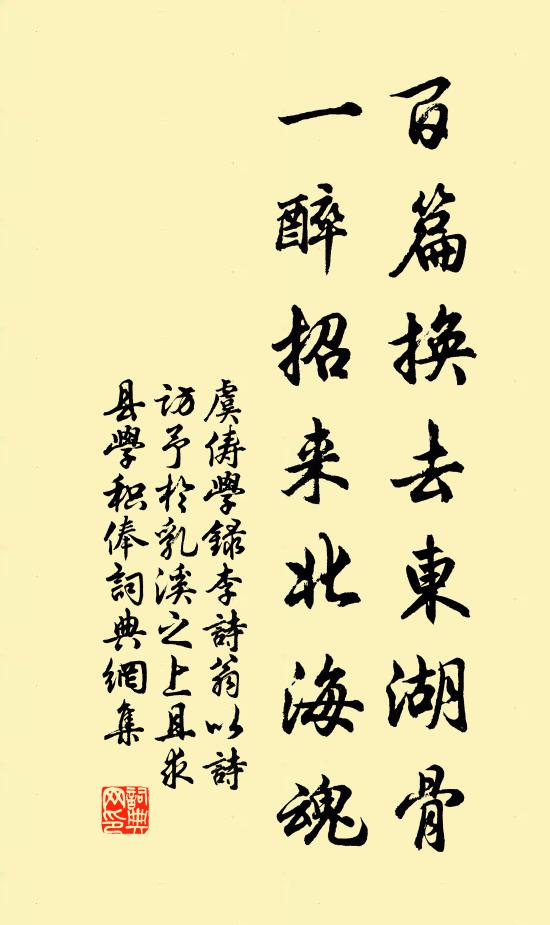 百篇換去東湖骨
一醉招来北海魂
虞俦學録李詩翁以詩
访予於乳溪之上且求
县學积俸詞典網集
詞典网印